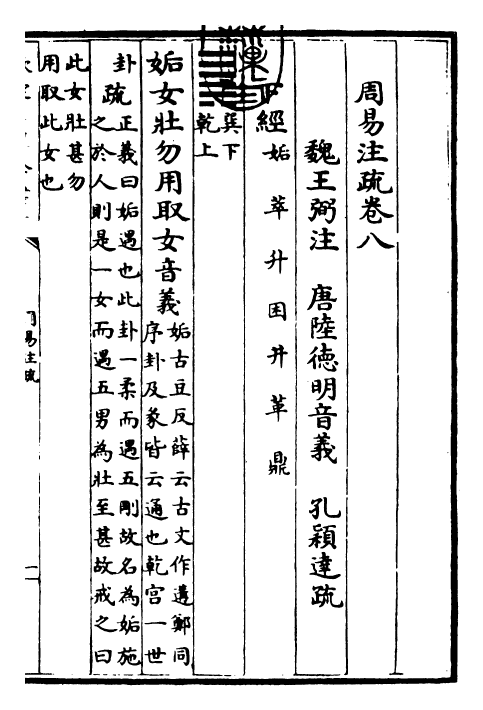 周易注疏卷八
魏王弼注　唐陸德明音義　孔穎達疏
經　姤　萃　升　困　井　革　鼎
巽下
乾上
姤女壯勿用取女音義
姤古豆反薛云古文作遘鄭同
序卦及彖皆云遇也乾宮一世
卦
疏
正義曰姤遇也此卦一柔而遇五剛故名為姤施
之於人則是一女而遇五男為壯至甚故戒之曰
此女壯甚勿
用取此女也
周易注疏
一